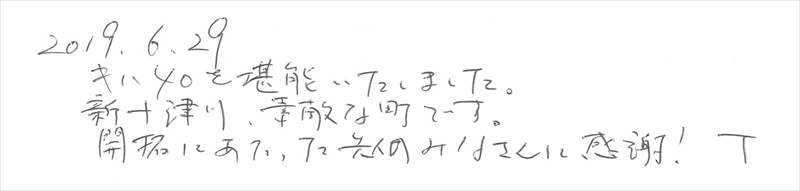 2019.6.29
キハ40を堪能いたしました。
新十津川、素敵な町です。
開拓にあたった先人のみなさんに感謝! T